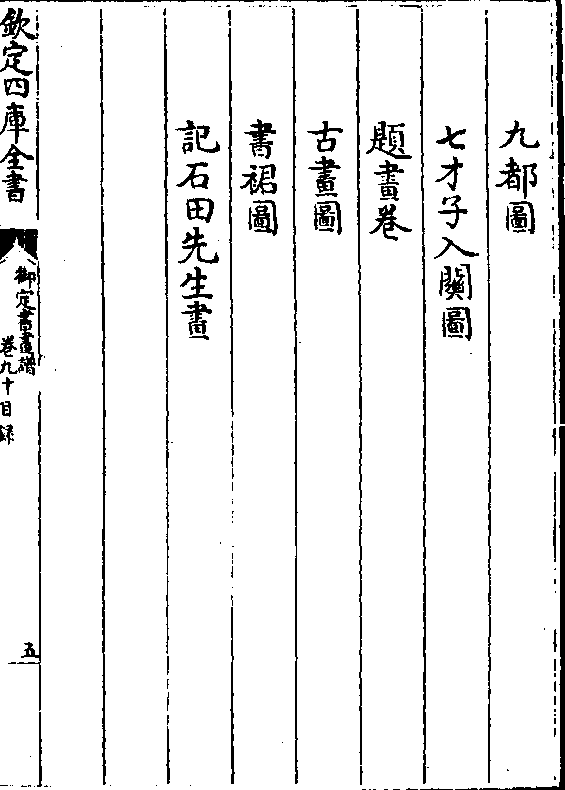 九都圖
七才子入關圖
題畫卷
古畫圖
書裙圖
記石田先生畫
欽定四庫全書
御定書畫譜
卷九十目録
五